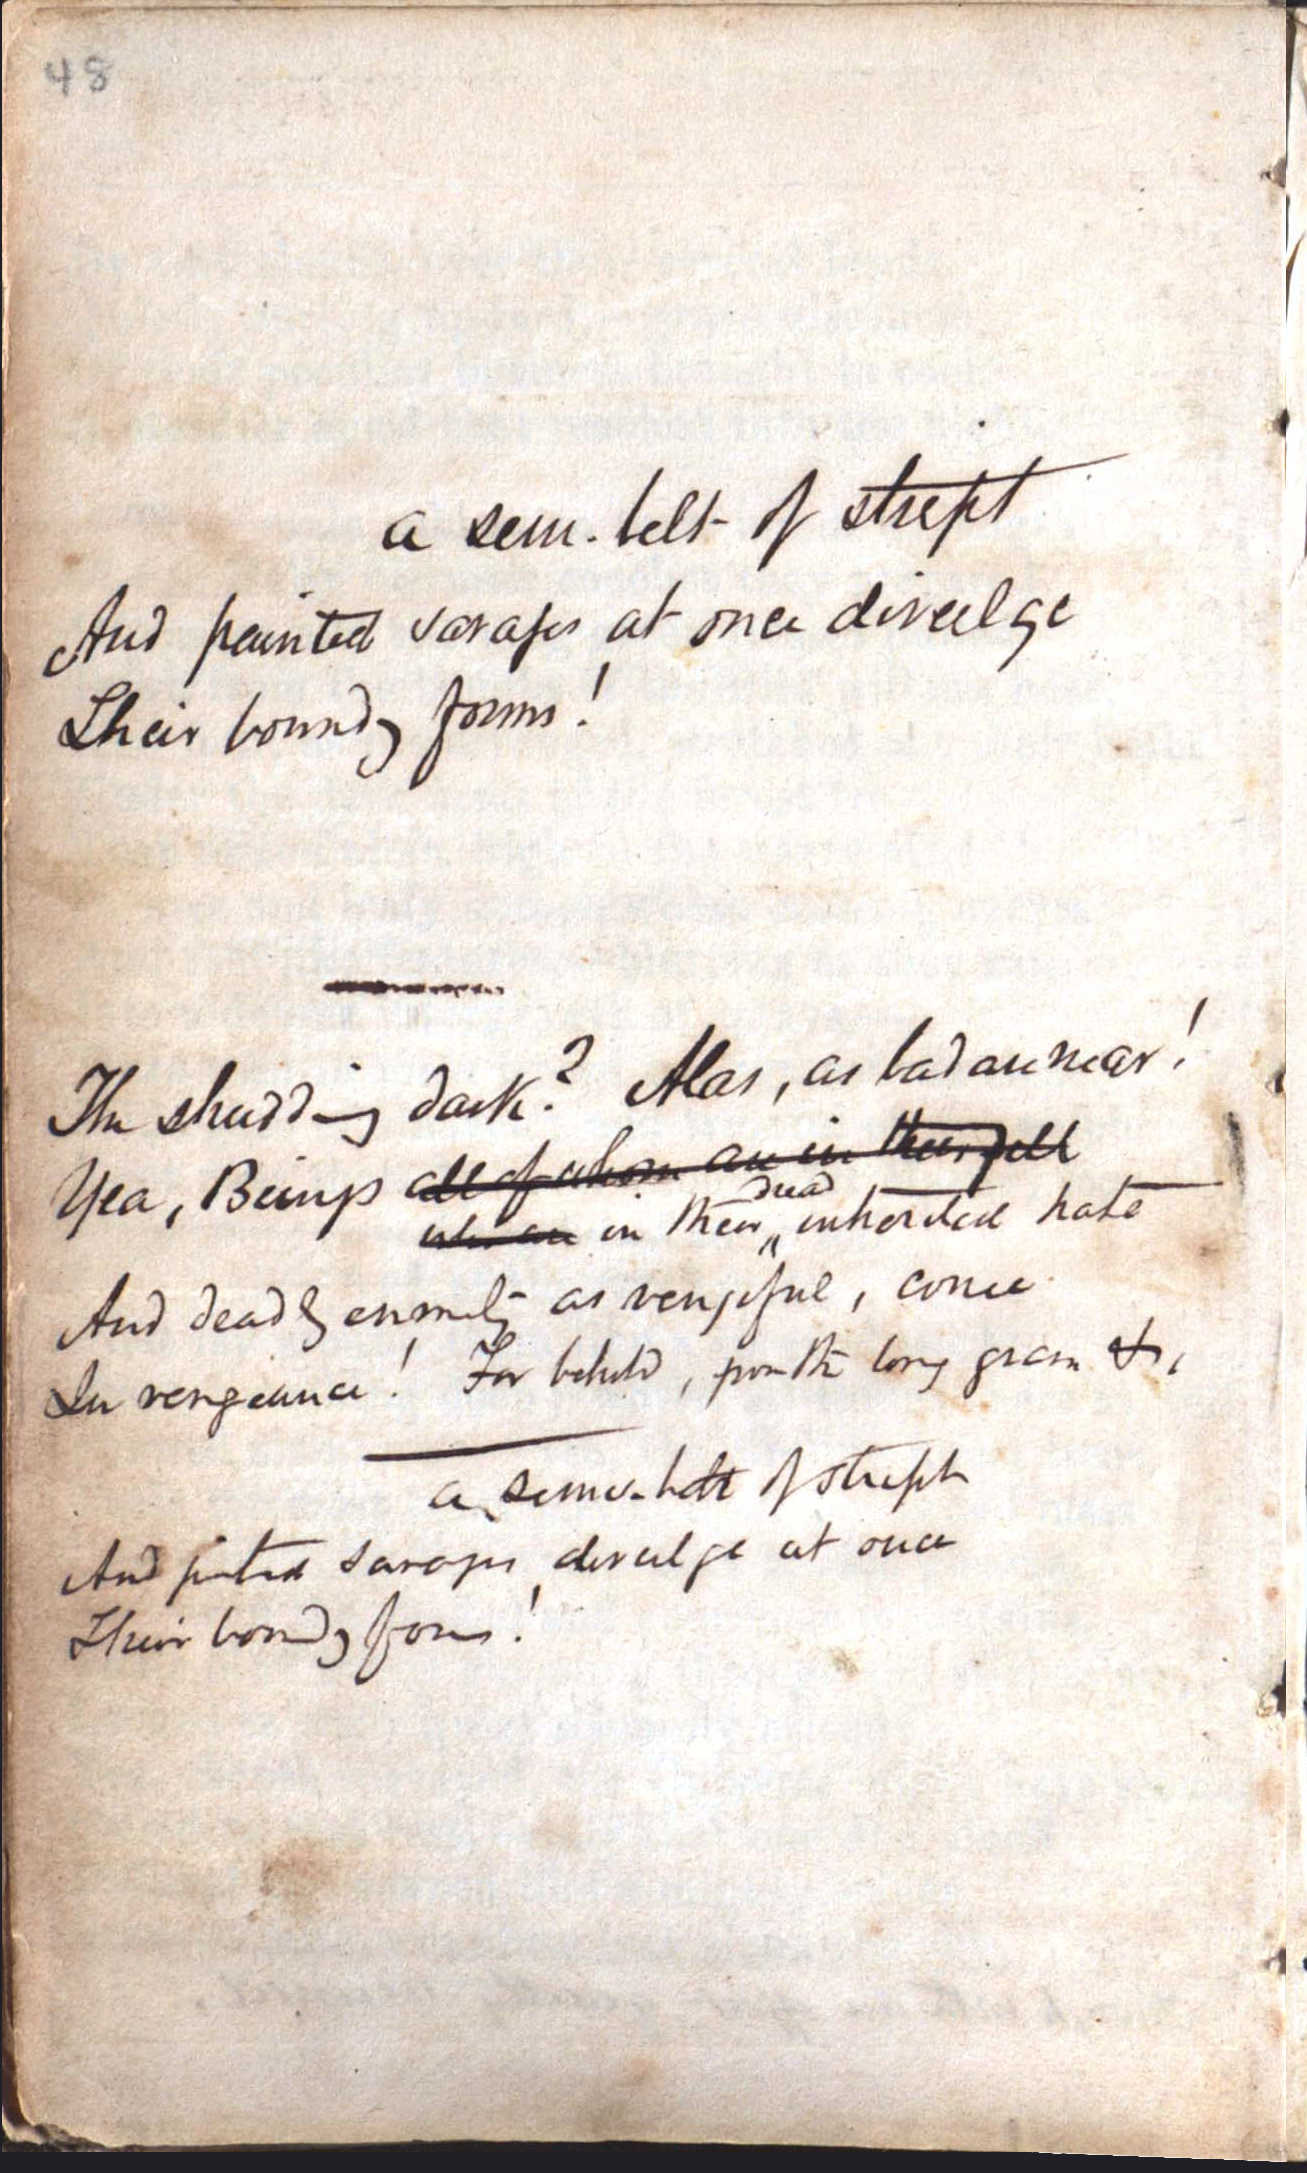 48
a semi-belt of stript
And painted savages at once divulge
Their boundg forms!
The shudding dark? Alas, as bad are near!
Yea, Beings all of whom are in their fell
who are in their dread inherited hate
And deadly enmity as vengeful, once
In vengeance! For behold, from the long grass &c,
a semi-belt of stript
And painted savages divulge at once
Their boundg forms!